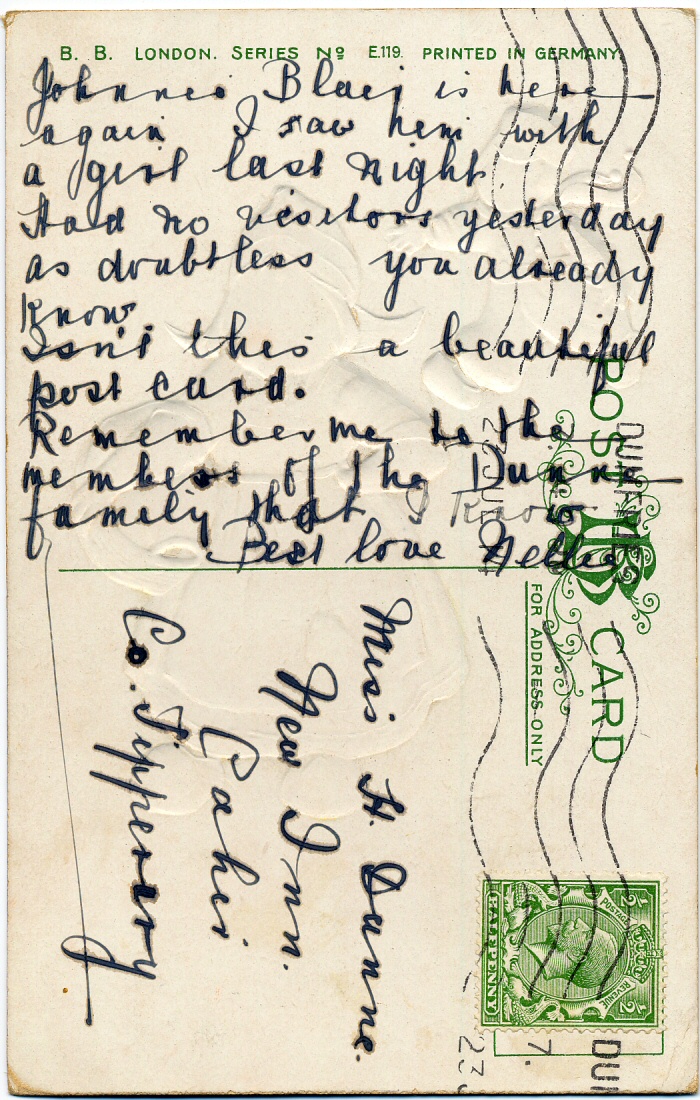 B. B. LONDON. SERIES Nº E.119. PRINTED IN GERMANY
Johnnie Blair is here
again I saw him with
a girl last night
Had no visitors yesterday
as doubtless you already
know.
Isn't this a beautiful
post card.
Remember me to the
members of the Dunne
family that I know
Best love Nellie
POST CARD
FOR ADDRESS ONLY
Miss H. Dunne.
New Inn.
Cahir
Co. Tipperary
POSTAGE
REVENUE
1/2 1/2
HALFPENNY
DUMFRIES
7.
23
DUM